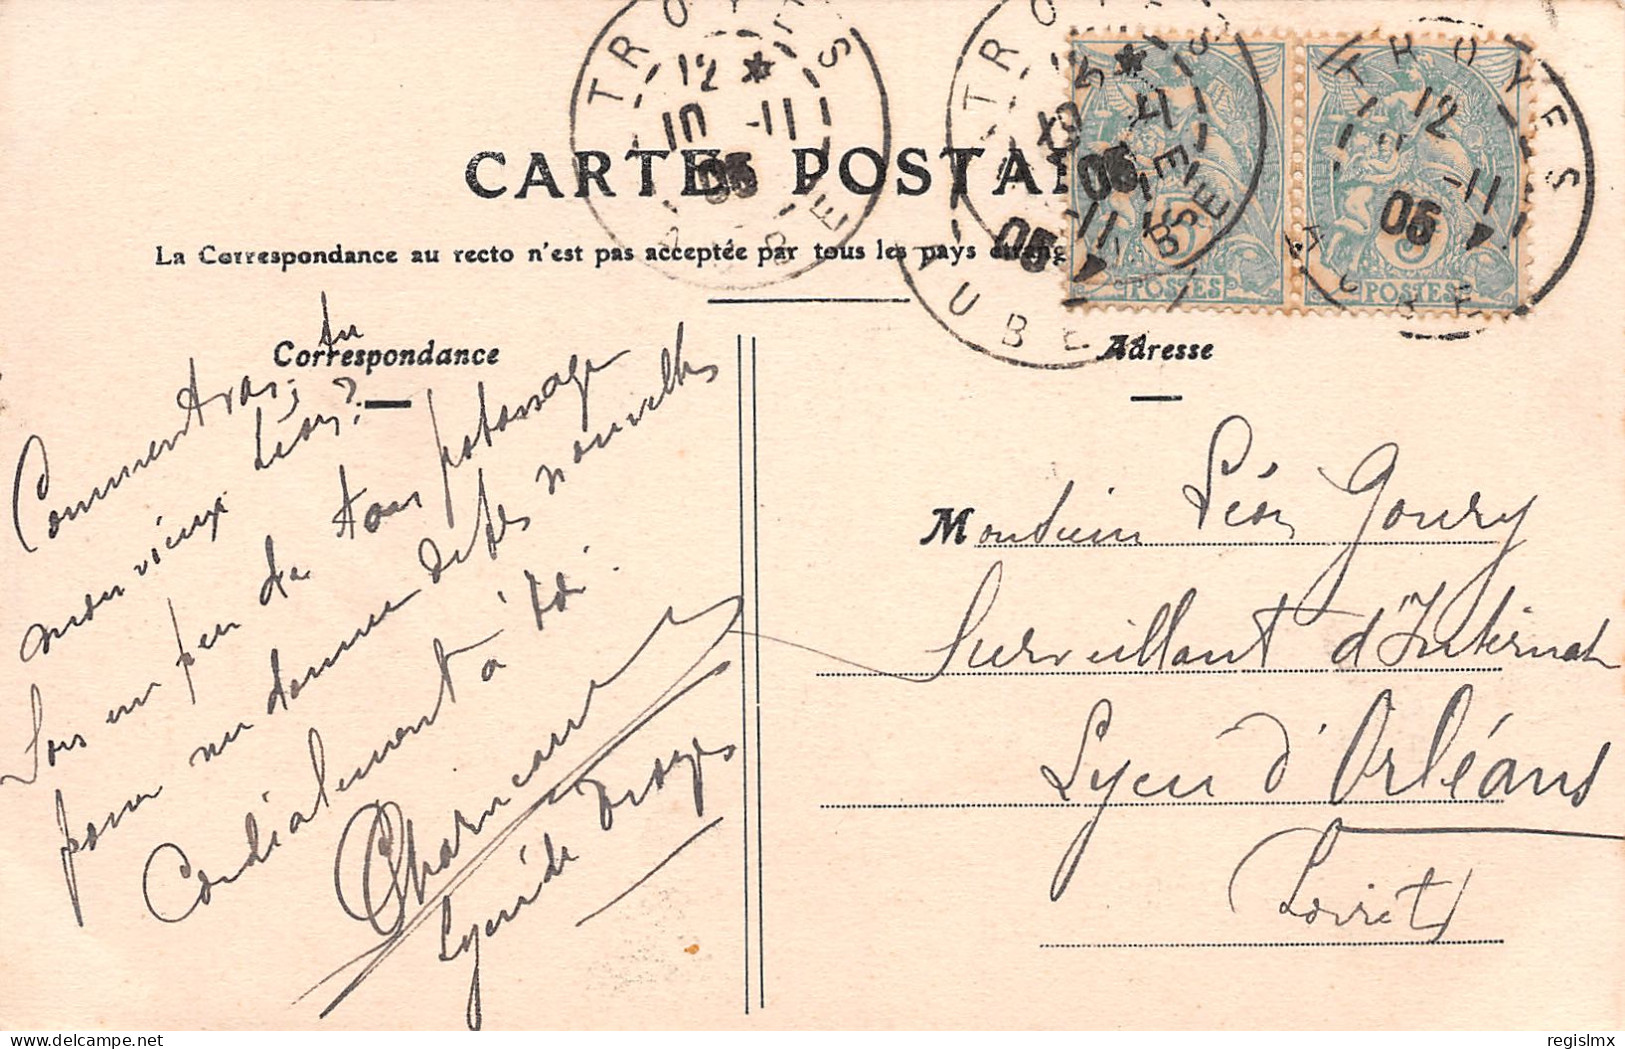 CARTE POSTALE
La Correspondance au recto n'est pas acceptée par tous les pays étrang
Correspondance
Adresse
Comment vas tu
mon vieux Léon?
Sors un peu de ton potassage
pour me donner de tes nouvelles
Cordialement à toi.
Lycée de Troyes
Monsieur Léon Goury
Surveillant d'Internat
Lycée d'Orléans
Loiret
TROYES
AUBE
12
10 -11
05
TROYES
AUBE
12
-11
05
TROYES
AUBE
12
-11
05
POSTES
5
POSTES
5
regislmx